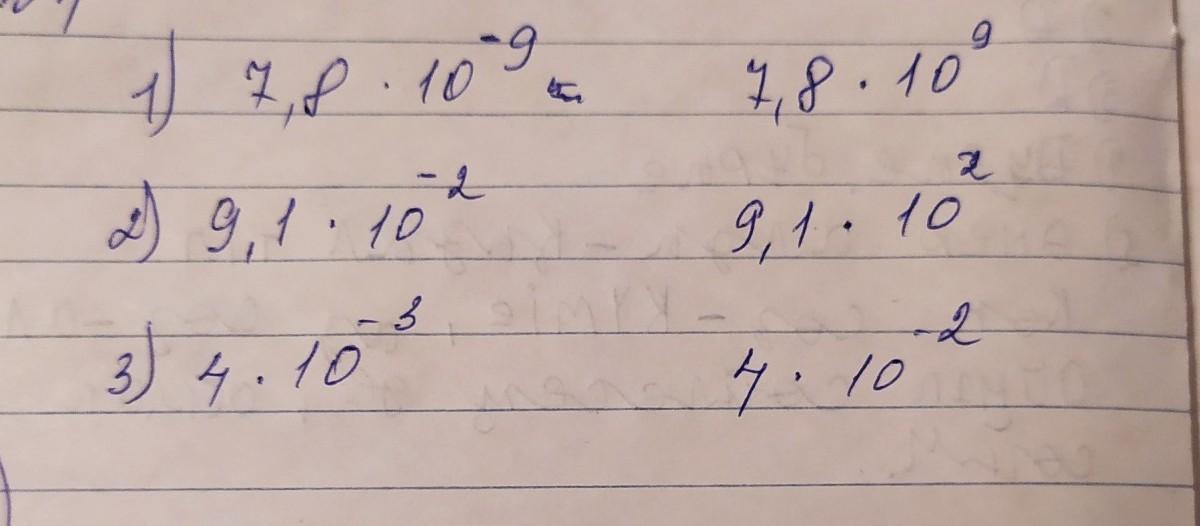 1) 7,8 · 10⁻⁹ 7,8 · 10⁹
2) 9,1 · 10⁻² 9,1 · 10²
3) 4 · 10⁻³ 4 · 10⁻²